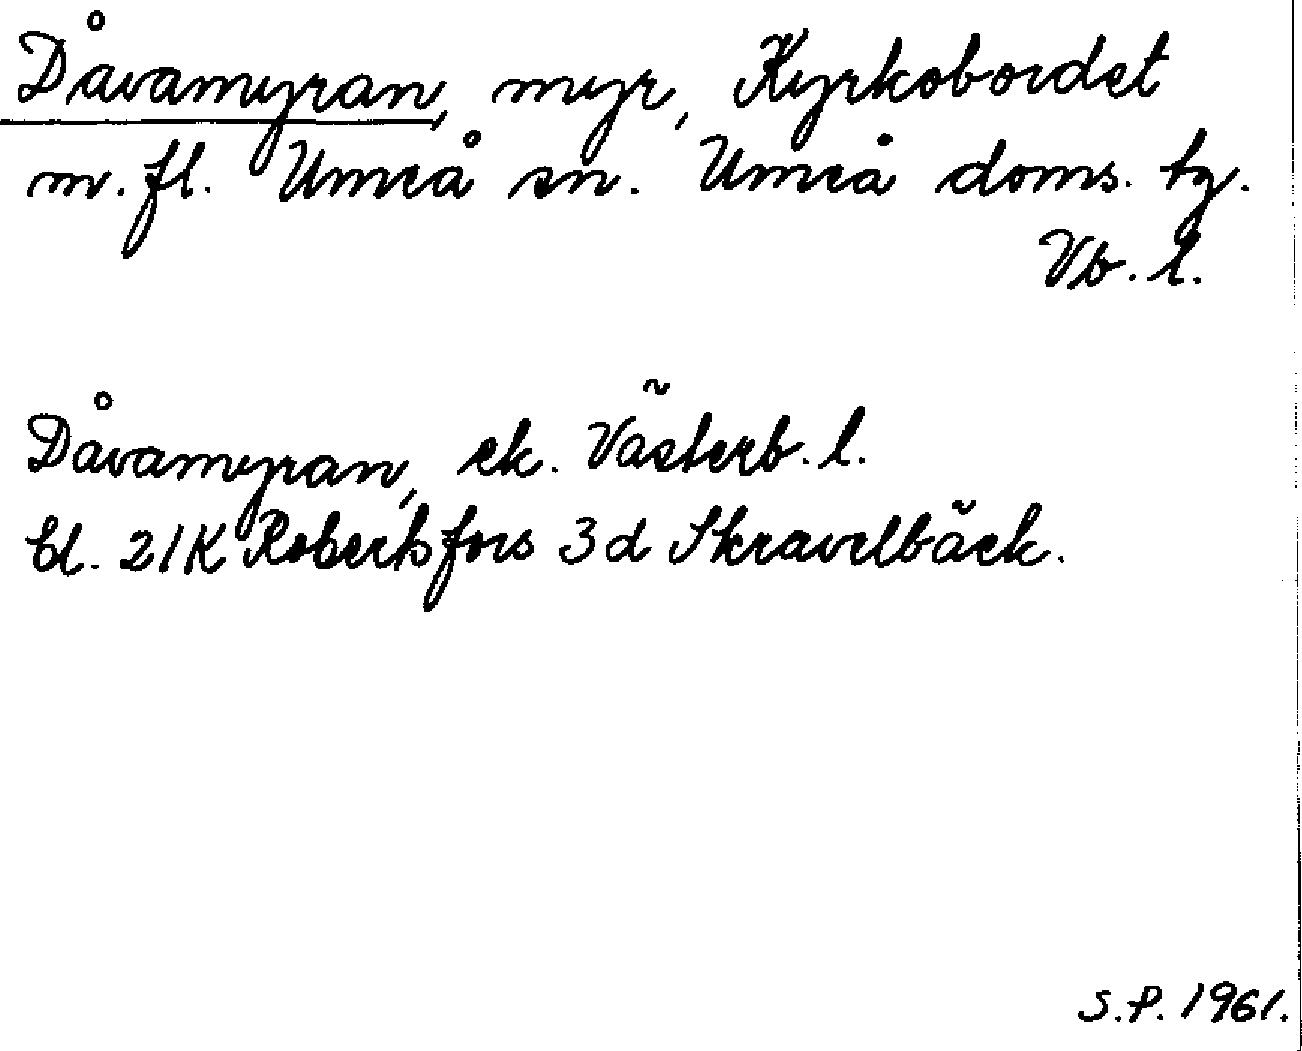 Dåvamyran, myr, Kyrkobordet
m. fl. Umeå sn. Umeå doms. tg.
Vb. l.
Dåvamyran, ek. Västerb. l.
bl. 21K Robertsfors 3d Skravelbäck.
S.P. 1961.